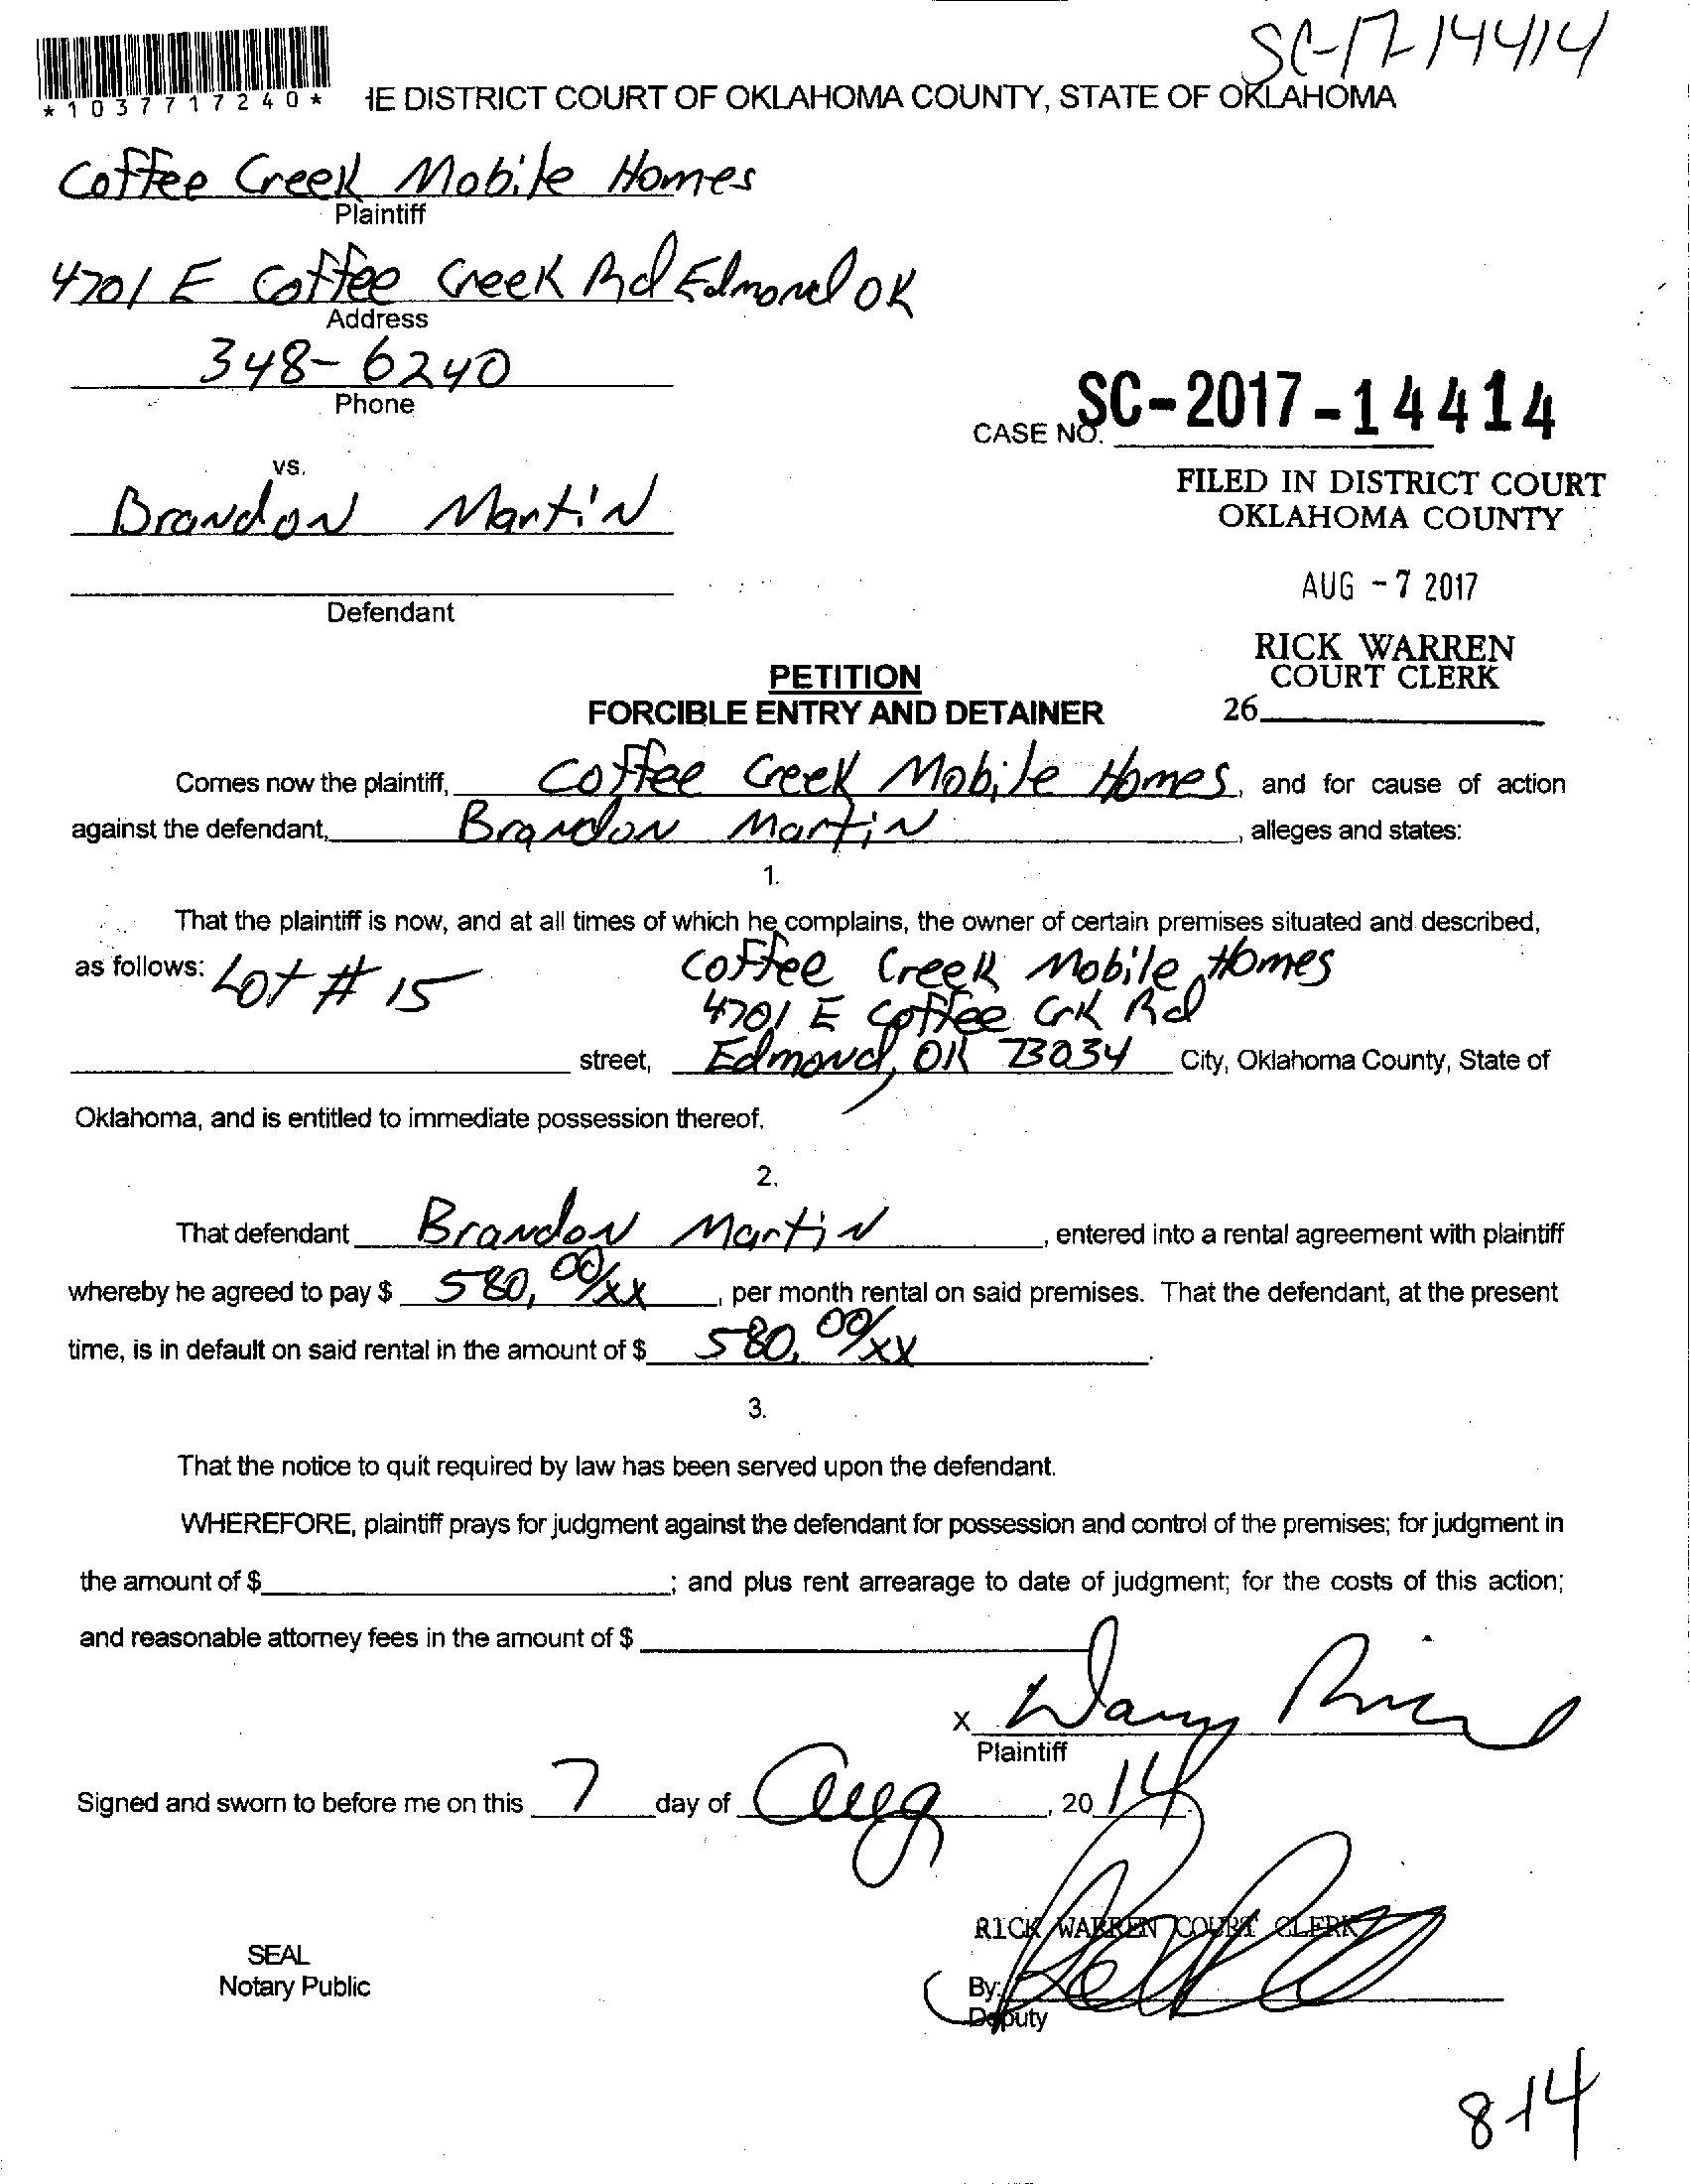 SC-17-14414
*1037717240*
IE DISTRICT COURT OF OKLAHOMA COUNTY, STATE OF OKLAHOMA
Coffee Creek Mobile Homes
Plaintiff
4701 E Coffee Creek Rd Edmond OK
Address
348-6240
Phone
CASE NO. SC-2017-14414
vs.
FILED IN DISTRICT COURT
OKLAHOMA COUNTY
Brandon Martin
AUG -7 2017
Defendant
RICK WARREN
COURT CLERK
26
PETITION
FORCIBLE ENTRY AND DETAINER
Comes now the plaintiff, Coffee Creek Mobile Homes, and for cause of action
against the defendant, Brandon Martin, alleges and states:
1.
That the plaintiff is now, and at all times of which he complains, the owner of certain premises situated and described,
as follows: Lot # 15 Coffee Creek Mobile Homes
4701 E Coffee Crk Rd
street, Edmond, OK 73034 City, Oklahoma County, State of
Oklahoma, and is entitled to immediate possession thereof.
2.
That defendant Brandon Martin, entered into a rental agreement with plaintiff
whereby he agreed to pay $ 580,00/xx, per month rental on said premises. That the defendant, at the present
time, is in default on said rental in the amount of $ 580,00/xx.
3.
That the notice to quit required by law has been served upon the defendant.
WHEREFORE, plaintiff prays for judgment against the defendant for possession and control of the premises; for judgment in
the amount of $; and plus rent arrearage to date of judgment; for the costs of this action;
and reasonable attorney fees in the amount of $
X
Plaintiff
Signed and sworn to before me on this 7 day of Aug, 2014
RICK WARREN COURT CLERK
SEAL
Notary Public
By:
Deputy
8-14